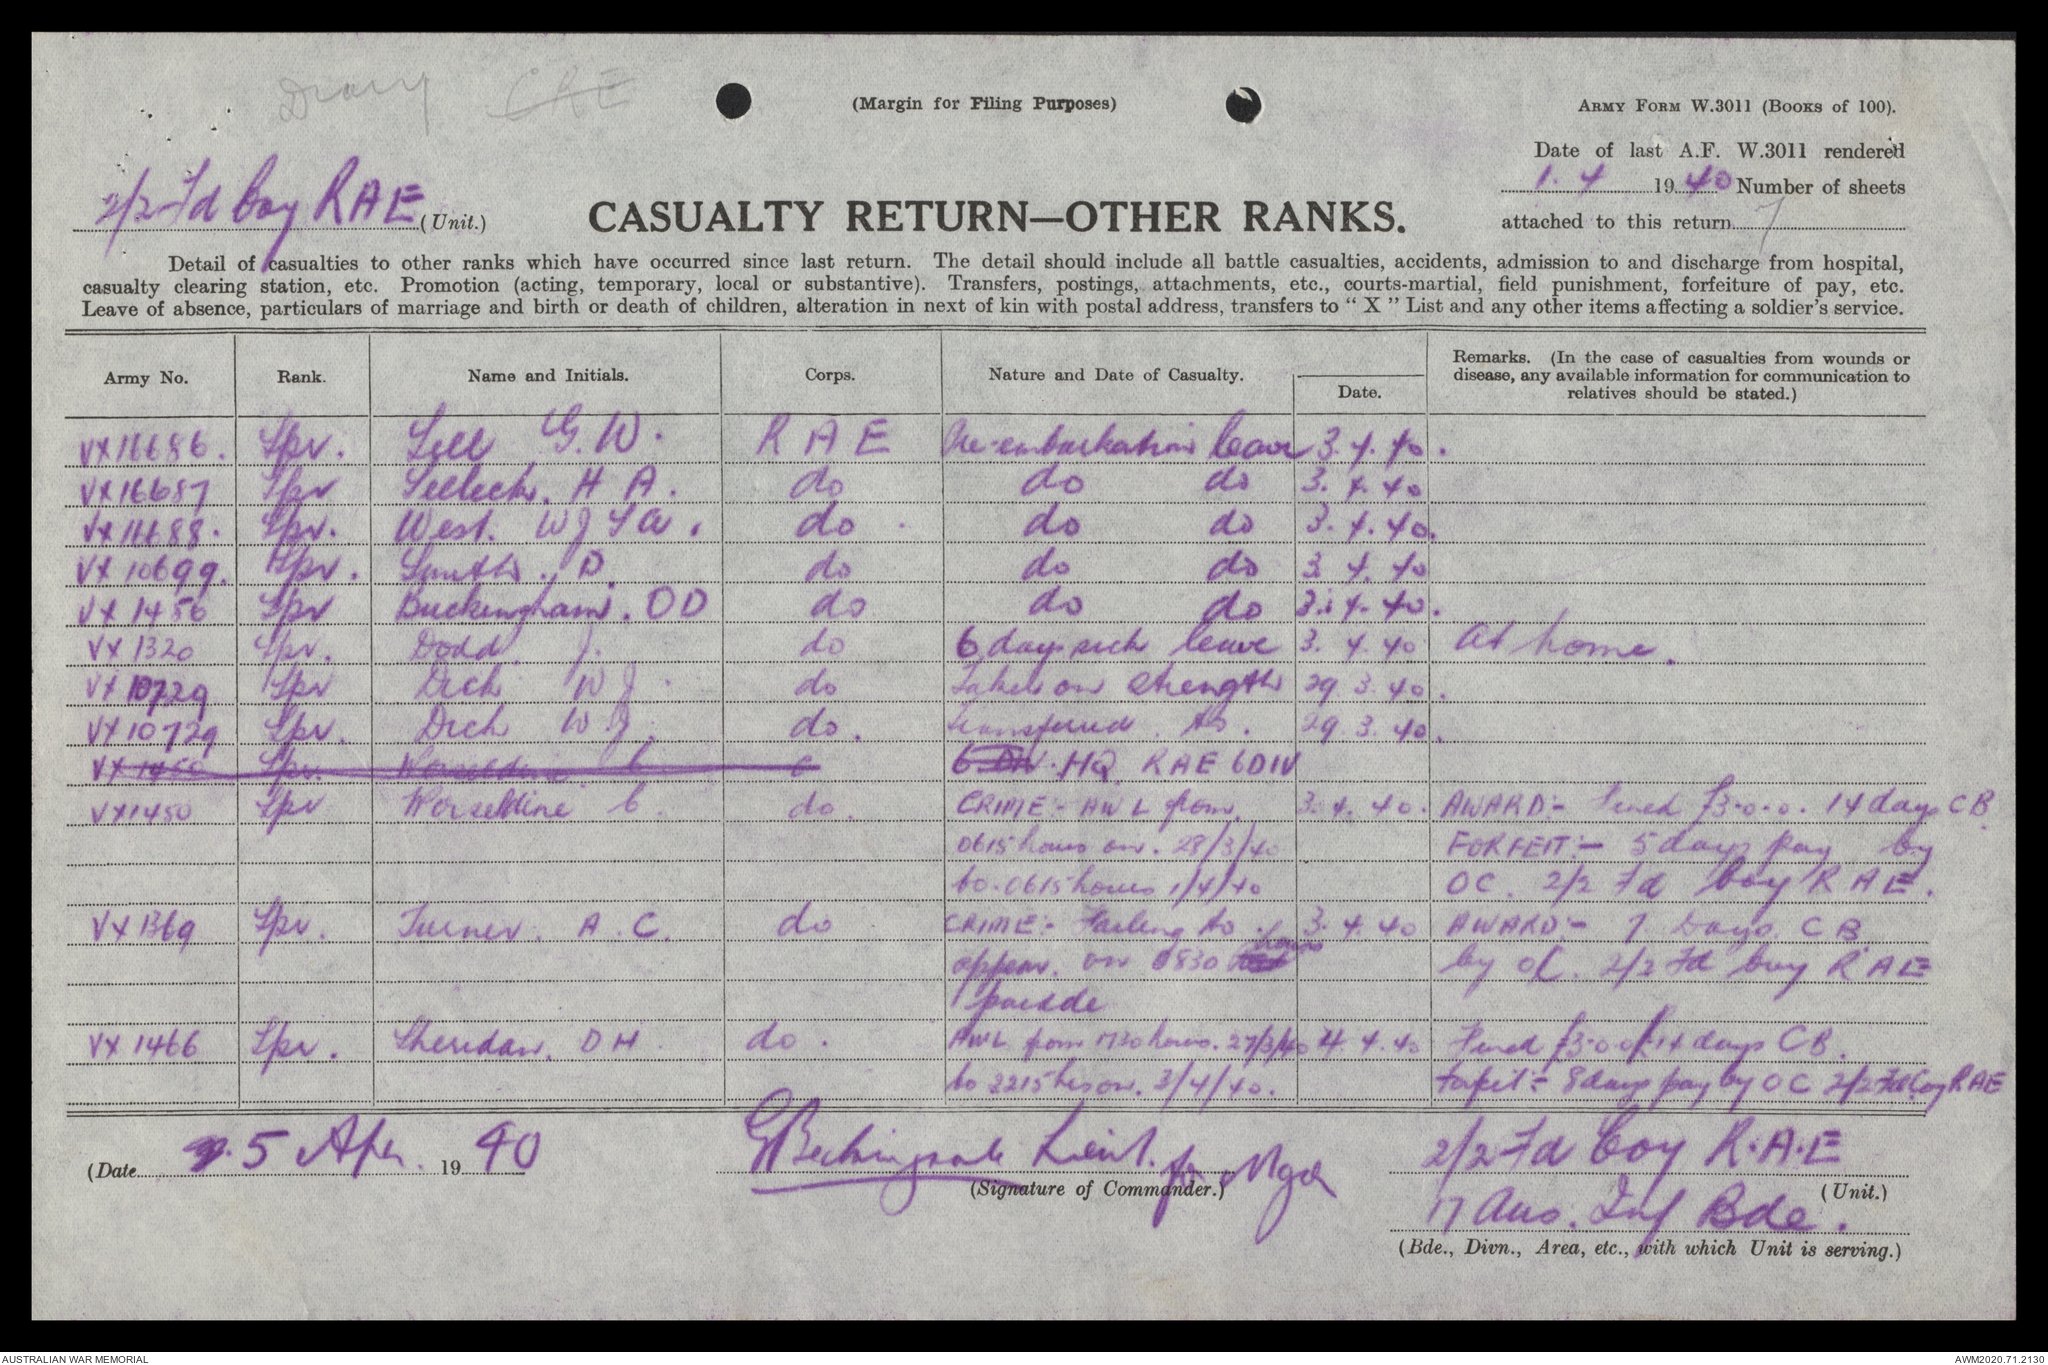 Diary CRE
(Margin for Filing Purposes)
ARMY FORM W.3011 (Books of 100).
Date of last A.F. W.3011 rendered
1. 4 1940 Number of sheets
attached to this return 7
2/2 Fd Coy RAE (Unit.)
CASUALTY RETURN—OTHER RANKS.
Detail of casualties to other ranks which have occurred since last return. The detail should include all battle casualties, accidents, admission to and discharge from hospital,
casualty clearing station, etc. Promotion (acting, temporary, local or substantive). Transfers, postings, attachments, etc., courts-martial, field punishment, forfeiture of pay, etc.
Leave of absence, particulars of marriage and birth or death of children, alteration in next of kin with postal address, transfers to "X" List and any other items affecting a soldier's service.
Army No. Rank. Name and Initials. Corps. Nature and Date of Casualty. Date. Remarks. (In the case of casualties from wounds or
disease, any available information for communication to
relatives should be stated.)
VX16686. Spr. G. W. RAE Pre-embarkation leave 3.4.40.
VX16687 Spr Selleck. H A. do do do 3.4.40
VX16688. Spr. West. W J do. do do 3.4.40.
VX10699. Spr. Smith. D. do do do 3 4.40
VX1456 Spr Buckingham. OD do do do 3.4.40.
VX1320 Spr. Dodd J. do 6 days sick leave 3.4.40 At home.
VX10729 Spr Dick W J. do Taken on strength 29.3.40.
VX10729 Spr. Dick W J. do. transferred to. 29.3.40.
VX1450 Spr. Worseldine C 6 DIV. HQ RAE 6DIV
VX1450 Spr Worseldine C. do. CRIME:- AWL from 3.4.40. AWARD:- Fined £3.0.0. 14 days CB.
0615 hours on. 28/3/40 FORFEIT:- 5 days pay by
to. 0615 hours 1/4/40 OC. 2/2 Fd Coy RAE.
VX1369 Spr. Turner. A.C. do CRIME:- Failing to 3.4.40 AWARD:- 7 Days CB.
appear. on 0830 hours by OC. 2/2 Fd Coy RAE
parade
VX1466 Spr. Sheridan. DH. do. AWL from 1730 hours. 27/3/40 4.4.40 Fined £3.0.0 14 days CB.
to 2215 hrs on. 3/4/40. Forfeit:- 8 days pay by OC 2/2 Fd Coy RAE
(Date 5 Apr. 1940 GBeckingsale Lieut. for Major 2/2 Fd Coy R.A.E
(Signature of Commander.) (Unit.)
17 Aus. Inf Bde.
(Bde., Divn., Area, etc., with which Unit is serving.)
AUSTRALIAN WAR MEMORIAL AWM2020.71.2130